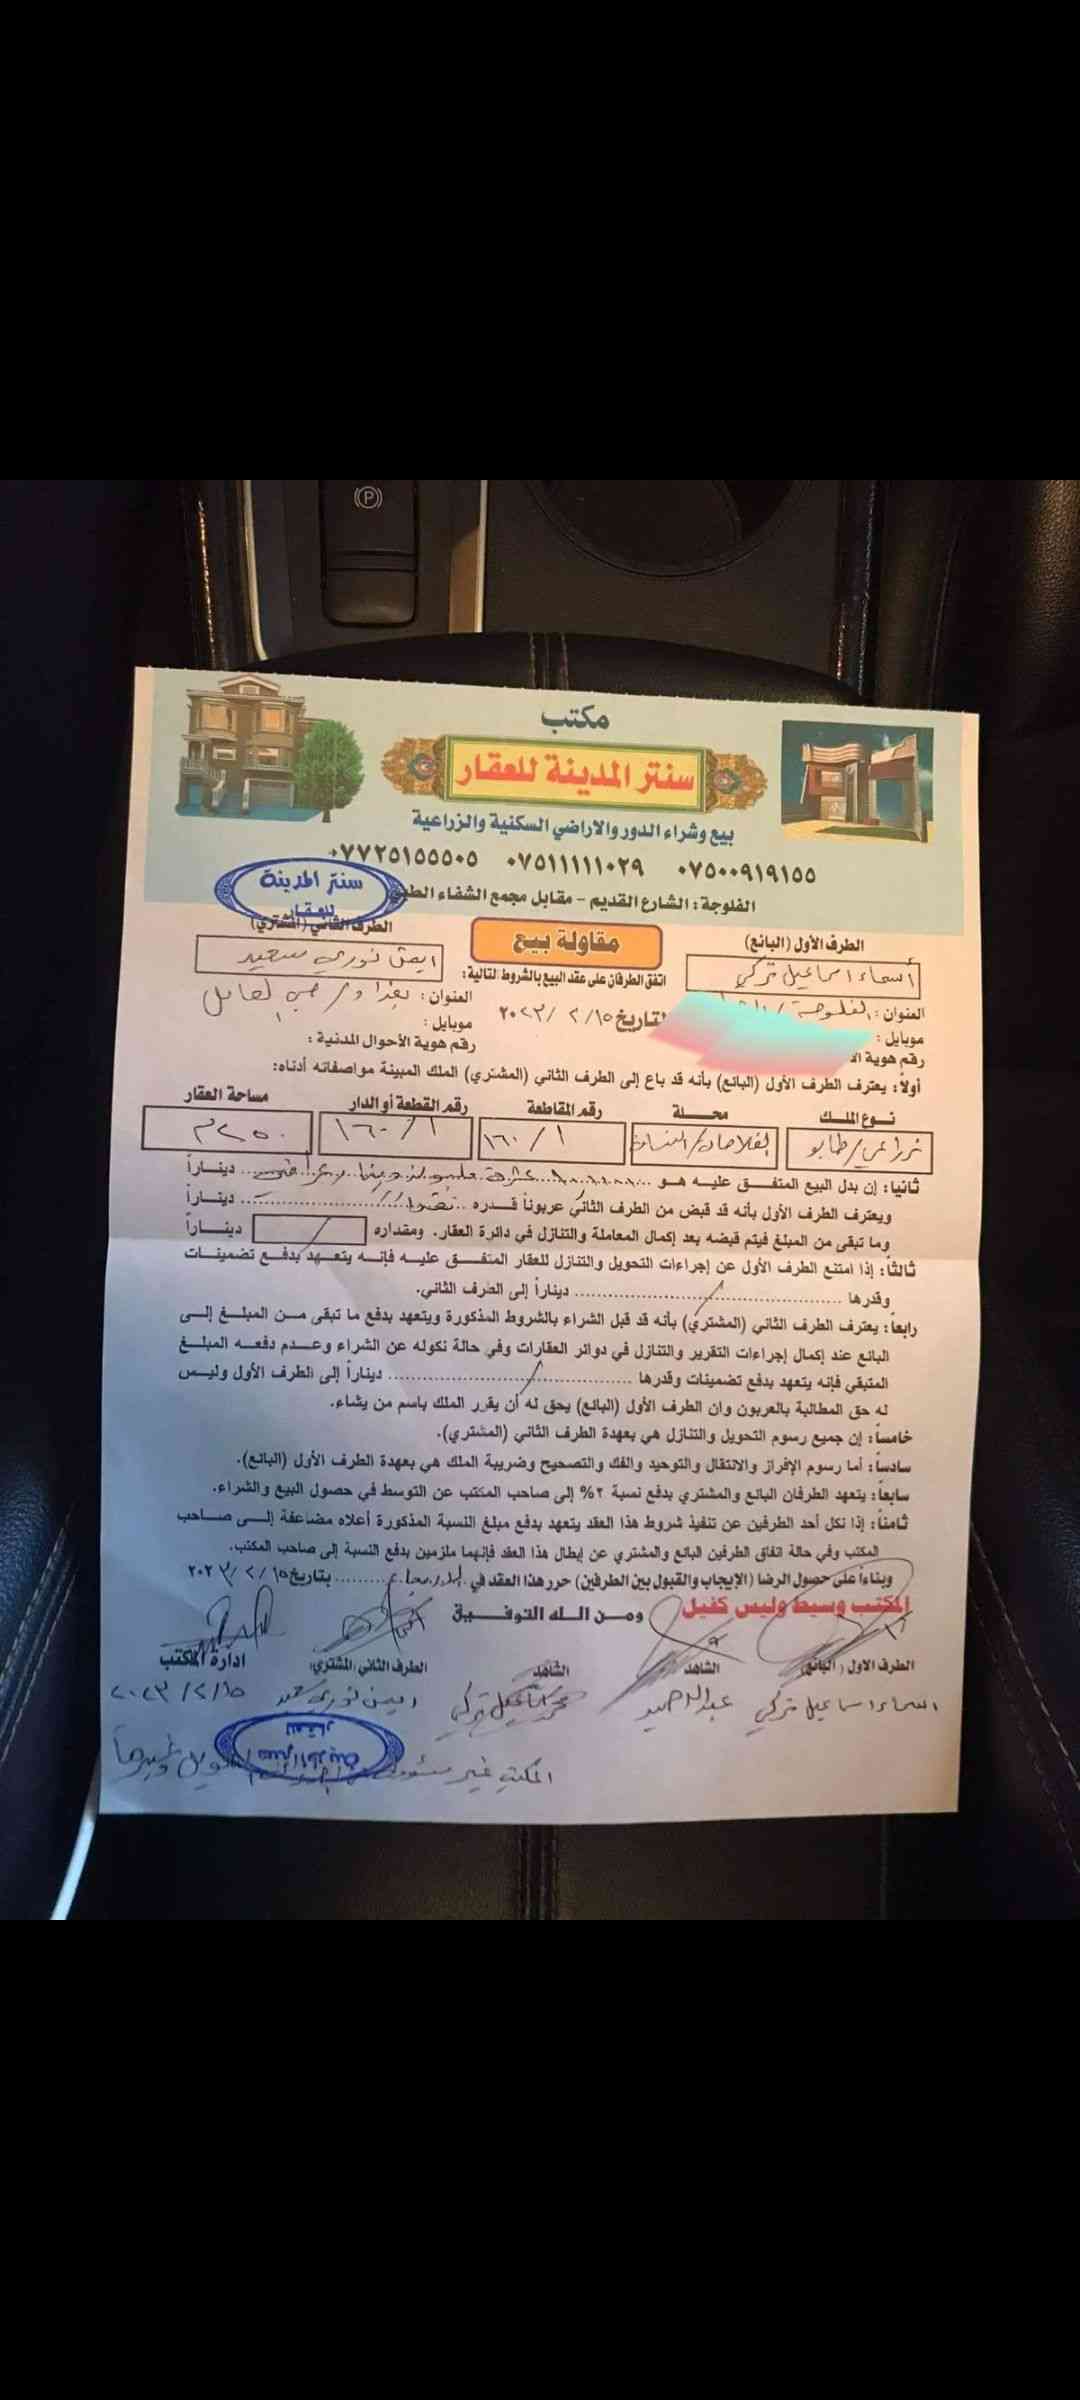 مكتب
سنتر المدينة للعقار
بيع وشراء الدور والاراضي السكنية والزراعية
٠٧٥٠٠٩١٩١٥٥ ٠٧٥١١١١١٠٢٩ ٠٧٧٢٥١٥٥٥٠٥
الفلوجة : الشارع القديم - مقابل مجمع الشفاء
سنتر المدينة للعقار
الطرف الأول (البائع)
مقاولة بيع
الطرف الثاني (المشتري)
أسماء اسماعيل تركي
اتفق الطرفان على عقد البيع بالشروط التالية :
ايمن نوري سعيد
العنوان : الفلوجة /
التاريخ ٢٠٢٣/ ٢ /١٥
العنوان : بغداد /
موبايل :
موبايل :
رقم هوية
رقم هوية الأحوال المدنية :
أولاً : يعترف الطرف الأول (البائع) بأنه قد باع إلى الطرف الثاني (المشتري) الملك المبينة مواصفاته أدناه:
نوع الملك محلة رقم المقاطعة رقم القطعة أو الدار مساحة العقار
زراعي/طابو ١/ ١٦٠ ١/ ١٦٠ ٢٥٠م
ثانياً : إن بدل البيع المتفق عليه هو عشرة مليون دينار ديناراً
ويعترف الطرف الأول بأنه قد قبض من الطرف الثاني عربوناً قدره نقداً ديناراً
وما تبقى من المبلغ فيتم قبضه بعد إكمال المعاملة والتنازل في دائرة العقار. ومقداره ديناراً
ثالثاً : إذا امتنع الطرف الأول عن إجراءات التحويل والتنازل للعقار المتفق عليه فإنه يتعهد بدفع تضمينات
وقدرها .................... ديناراً إلى الطرف الثاني.
رابعاً : يعترف الطرف الثاني (المشتري) بأنه قد قبل الشراء بالشروط المذكورة ويتعهد بدفع ما تبقى من المبلغ إلى
البائع عند إكمال إجراءات التقرير والتنازل في دوائر العقارات وفي حالة نكوله عن الشراء وعدم دفعه المبلغ
المتبقي فإنه يتعهد بدفع تضمينات وقدرها .................... ديناراً إلى الطرف الأول وليس
له حق المطالبة بالعربون وان الطرف الأول (البائع) يحق له أن يقرر الملك باسم من يشاء.
خامساً : إن جميع رسوم التحويل والتنازل هي بعهدة الطرف الثاني (المشتري).
سادساً : أما رسوم الإفراز والانتقال والتوحيد والفك والتصحيح وضريبة الملك هي بعهدة الطرف الأول (البائع).
سابعاً : يتعهد الطرفان البائع والمشتري بدفع نسبة ٢% إلى صاحب المكتب عن التوسط في حصول البيع والشراء.
ثامناً : إذا نكل أحد الطرفين عن تنفيذ شروط هذا العقد يتعهد بدفع مبلغ النسبة المذكورة أعلاه مضاعفة إلى صاحب
المكتب وفي حالة اتفاق الطرفين البائع والمشتري عن إبطال هذا العقد فإنهما ملزمين بدفع النسبة إلى صاحب المكتب.
وبناءاً على حصول الرضا (الإيجاب والقبول بين الطرفين) حرر هذا العقد في ......... بتاريخ ٢٠٢٣/ ٢ /١٥
المكتب وسيط وليس كفيل
ومن الله التوفيق
الطرف الأول ( البائع ) الشاهد الشاهد الطرف الثاني (المشتري) ادارة المكتب
اسماء اسماعيل تركي اسماعيل تركي ايمن نوري سعيد ٢٠٢٣/٢/١٥
سنتر المدينة للعقار
المكتب غير مسؤول